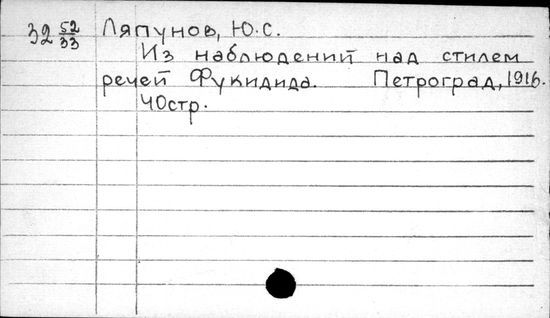 32 52/33 Ляпунов, Ю.С.
Из наблюдений над стилем
речей Фукидида. Петроград, 1916.
40стр.